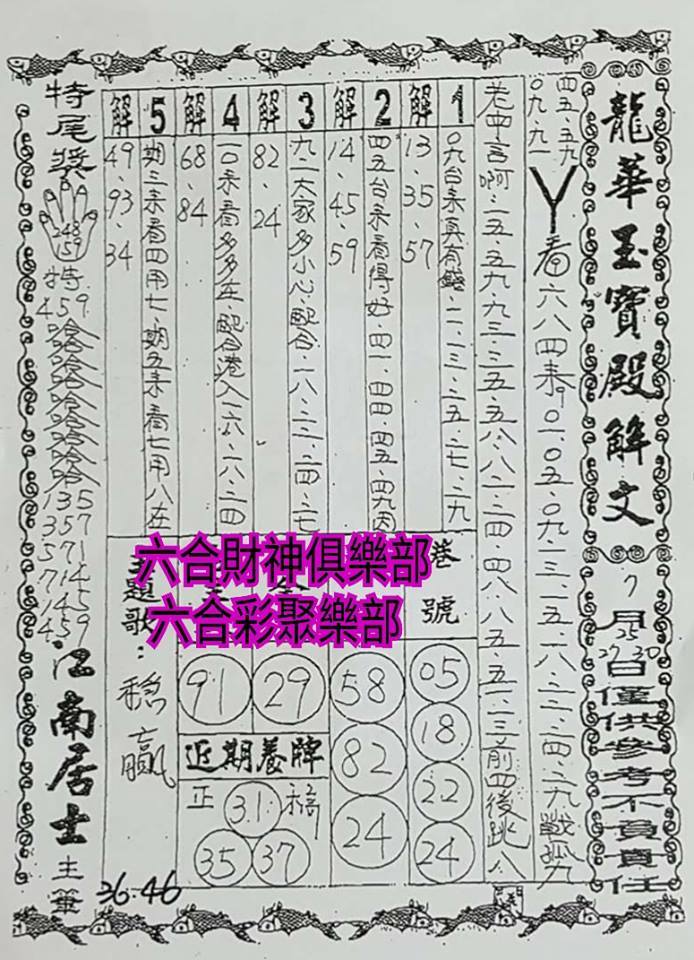 龍華玉寶殿解文
7月25 27 30日僅供參考不負責任
四五.五九
〇九.九一
Y看六八四來.〇一.〇五.〇九.一三.一五.一八.二二.二四.二九戰
老四言啊.一五.五九.九三.三五.五八.八二.二四.四八.八五.五一.二三前四後跳八
1
〇九台來真有錢.一一.一三.二五.二七.二九
解
13.35.57
2
四五台來看得好.四一.四四.四五.四九因
解
14.45.59
3
九一大家多小心.配合.一八.二二.二四.二七
解
82.24
4
一〇來看多多在.配合港入一六.一八.二四
解
68.84
5
期三來看四用七.期五來看七用八在
解
49.93.34
港號
05
18
22
24
58
82
24
29
91
近期養牌
正
31
35
37
主題歌：穩贏
六合財神俱樂部
六合彩聚樂部
特尾獎
248
159
特
459
哈哈哈哈哈哈哈
135
357
571
714
145
459
江南居士主筆
36.46